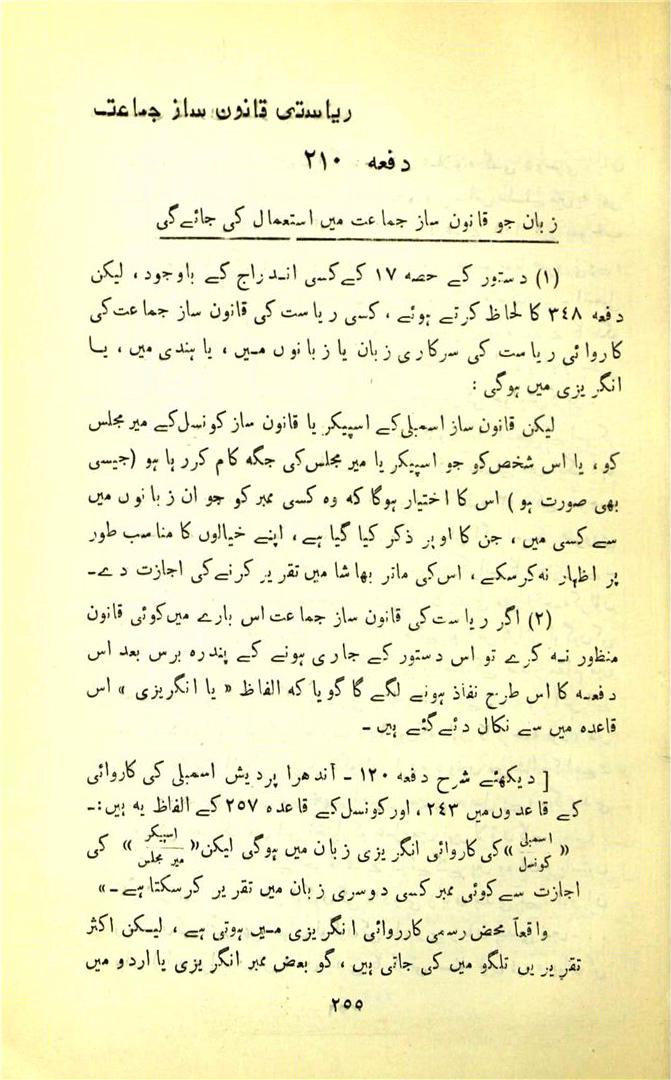 ریاستی قانون ساز جماعت
دفعہ ۲۱۰
زبان جو قانون ساز جماعت میں استعمال کی جائے گی
(۱) دستور کے حصہ ۱۷ کے کسی اندراج کے باوجود ، لیکن
دفعہ ۳۴۸ کا لحاظ کرتے ہوئے ، کسی ریاست کی قانون ساز جماعت کی
کاروائی ریاست کی سرکاری زبان یا زبانوں میں ، یا ہندی میں ، یا
انگریزی میں ہوگی :
لیکن قانون ساز اسمبلی کے اسپیکر یا قانون ساز کونسل کے میر مجلس
کو ، یا اس شخص کو جو اسپیکر یا میر مجلس کی جگہ کام کر رہا ہو (جیسی
بھی صورت ہو) اس کا اختیار ہوگا کہ وہ کسی ممبر کو جو ان زبانوں میں
سے کسی میں ، جن کا اوپر ذکر کیا گیا ہے ، اپنے خیالوں کا مناسب طور
پر اظہار نہ کرسکے ، اس کی ماتر بھاشا میں تقریر کرنے کی اجازت دے۔
(۲) اگر ریاست کی قانون ساز جماعت اس بارے میں کوئی قانون
منظور نہ کرے تو اس دستور کے جاری ہونے کے پندرہ برس بعد اس
دفعہ کا اس طرح نفاذ ہونے لگے گا گویا کہ الفاظ « یا انگریزی » اس
قاعدہ میں سے نکال دئے گئے ہیں ۔
[ دیکھئے شرح دفعہ ۱۲۰ ۔ آندھرا پردیش اسمبلی کی کاروائی
کے قاعدوں میں ۲۴۳ ، اور کونسل کے قاعدہ ۲۵۷ کے الفاظ یہ ہیں:۔
« اسمبلی / کونسل » کی کاروائی انگریزی زبان میں ہوگی لیکن « اسپیکر / میر مجلس » کی
اجازت سے کوئی ممبر کسی دوسری زبان میں تقریر کرسکتا ہے ۔»
واقعاً محض رسمی کارروائی انگریزی میں ہوتی ہے ، لیکن اکثر
تقریریں تلگو میں کی جاتی ہیں ، گو بعض ممبر انگریزی یا اردو میں
۲۵۵